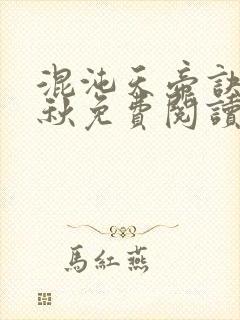 混沌天帝訣
秋免費閱讀
馬紅燕